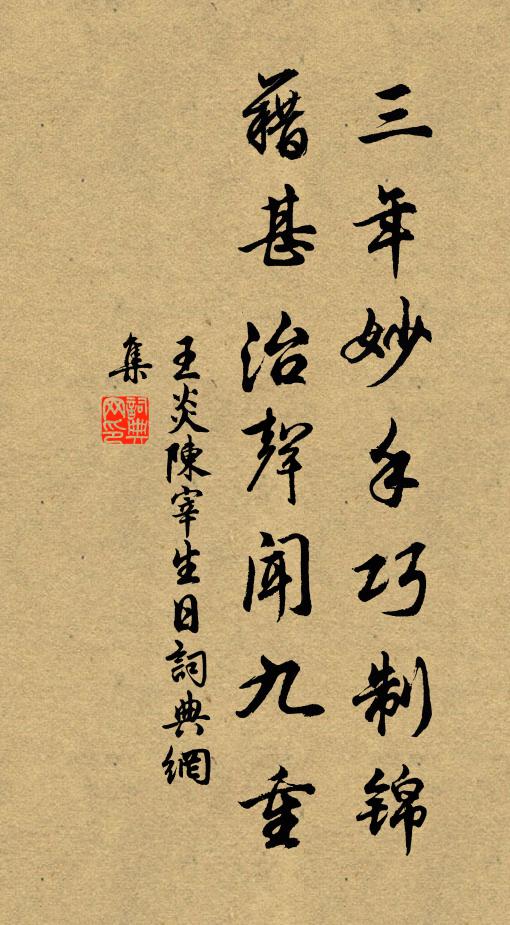 三年妙手巧制锦
藉甚治聲闻九重
王炎陳宰生日詞典網
集
詞典网印